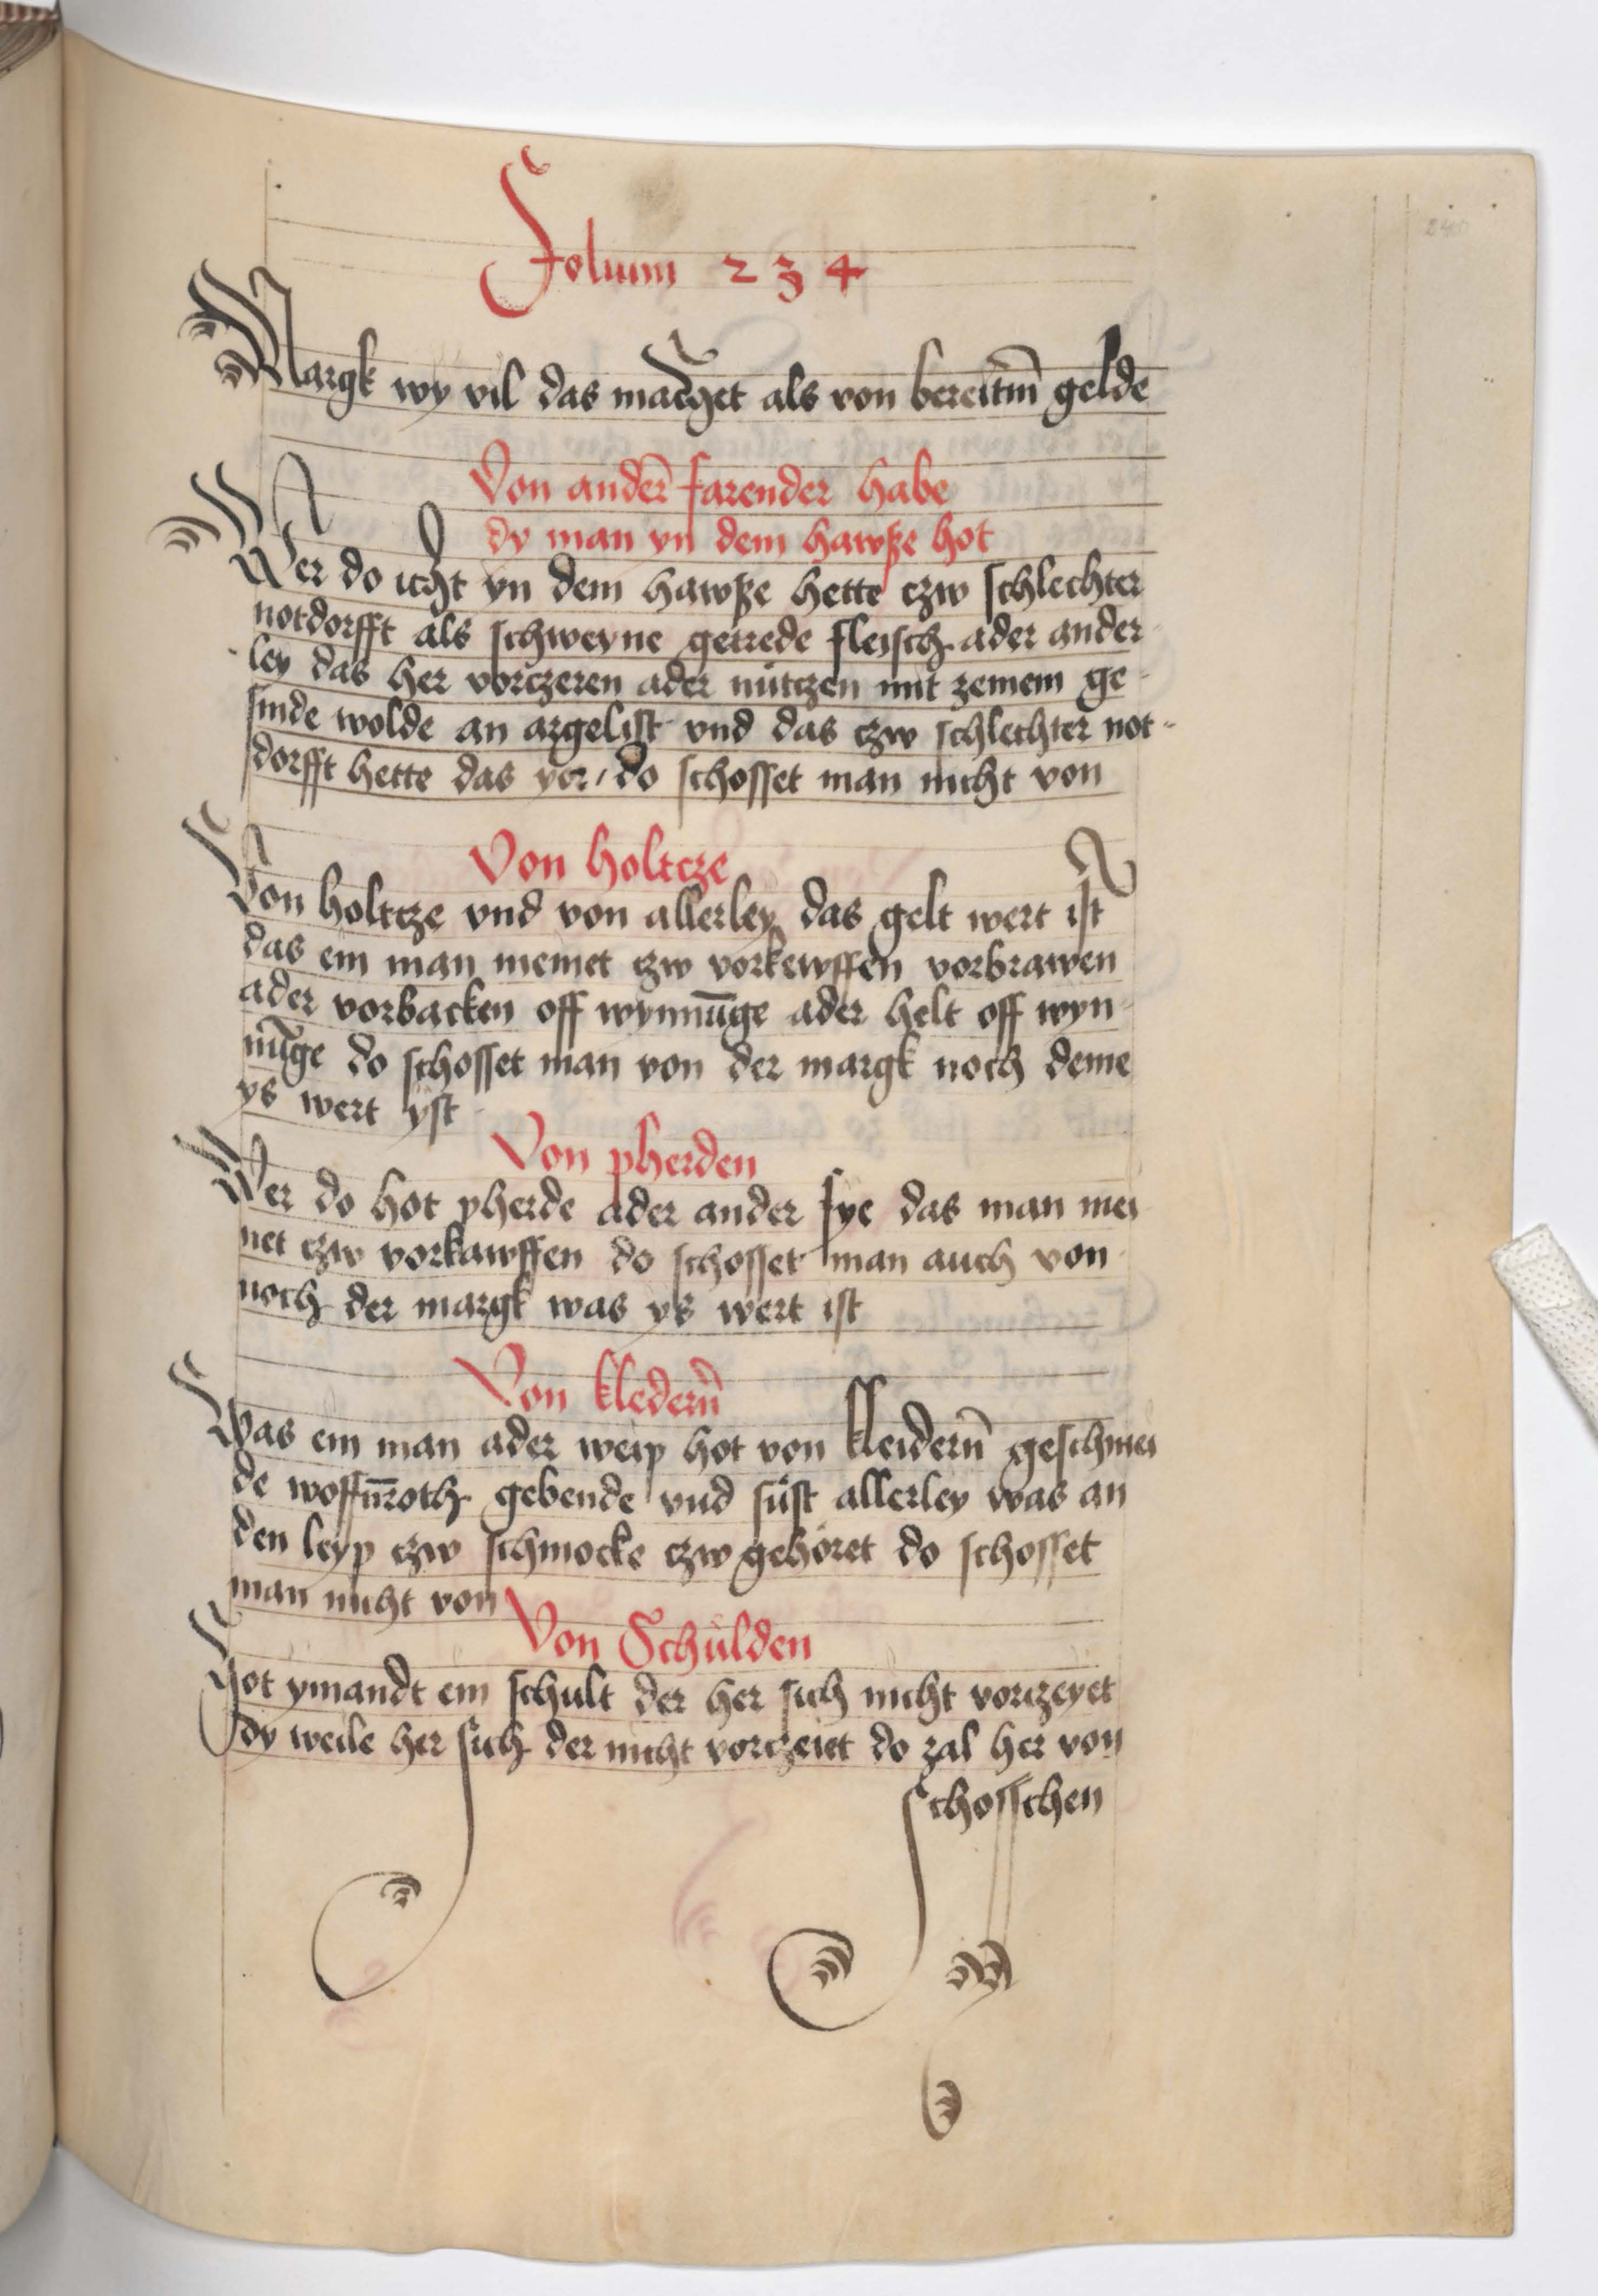 Folium 234
Margk wy vil das machet als von bereitm̄ gelde
Von ander̄ farender habe
dy man yn dem hawße hot
Wer do icht yn dem hawße hette czw schlechter
notdorfft als schweyne getrede fleisch ader ander
ley das her vorczeren ader nutczen mit zeinem ge-
sinde wolde an argelist vnd das czw schlechter not-
dorfft hette das yor / do schosset man nicht von
Von holtcze
Von holtcze vnd von allerley das gelt wert ist
das ein man meinet czw vorkewffen vorbrawen
ader vorbacken off wynnūge ader helt off wyn-
nūge do schosset man von der margk noch deme
ys wert yst
Von pherden
Wer do hot pherde ader ander fye das man mei
net czw vorkawffen do schosset man auch von
noch der margk was ys wert ist
Von kledern̄
Was ein man ader weip hot von kleidern̄ geschmei
de woffn̄roth gebende vnd sust allerley was an
den leyp czw schmocke czw gehöret do schosset
man nicht von
Von Schulden
Hot ymandt ein schult der her sich nicht vorczeyet
dy weile her sich der nicht vorczeiet do zal her von
schosschen